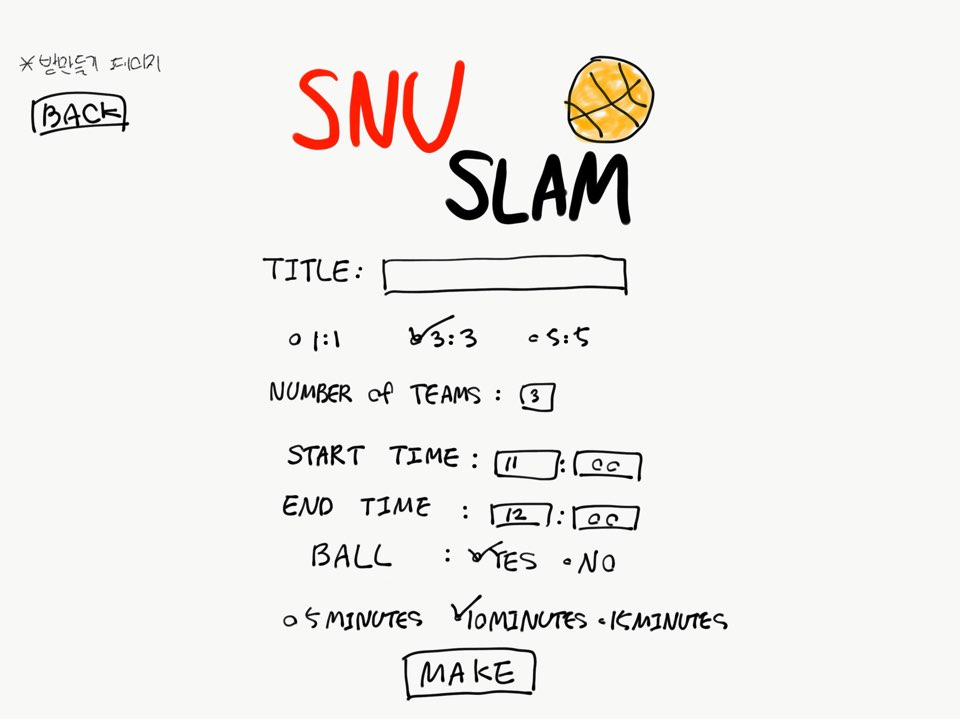 *방만들기 페이지
BACK
SNU
SLAM
TITLE:
1:1 3:3 5:5
NUMBER of TEAMS : 3
START TIME : 11 : 00
END TIME : 12 : 00
BALL : YES NO
5 MINUTES 10 MINUTES 15 MINUTES
MAKE